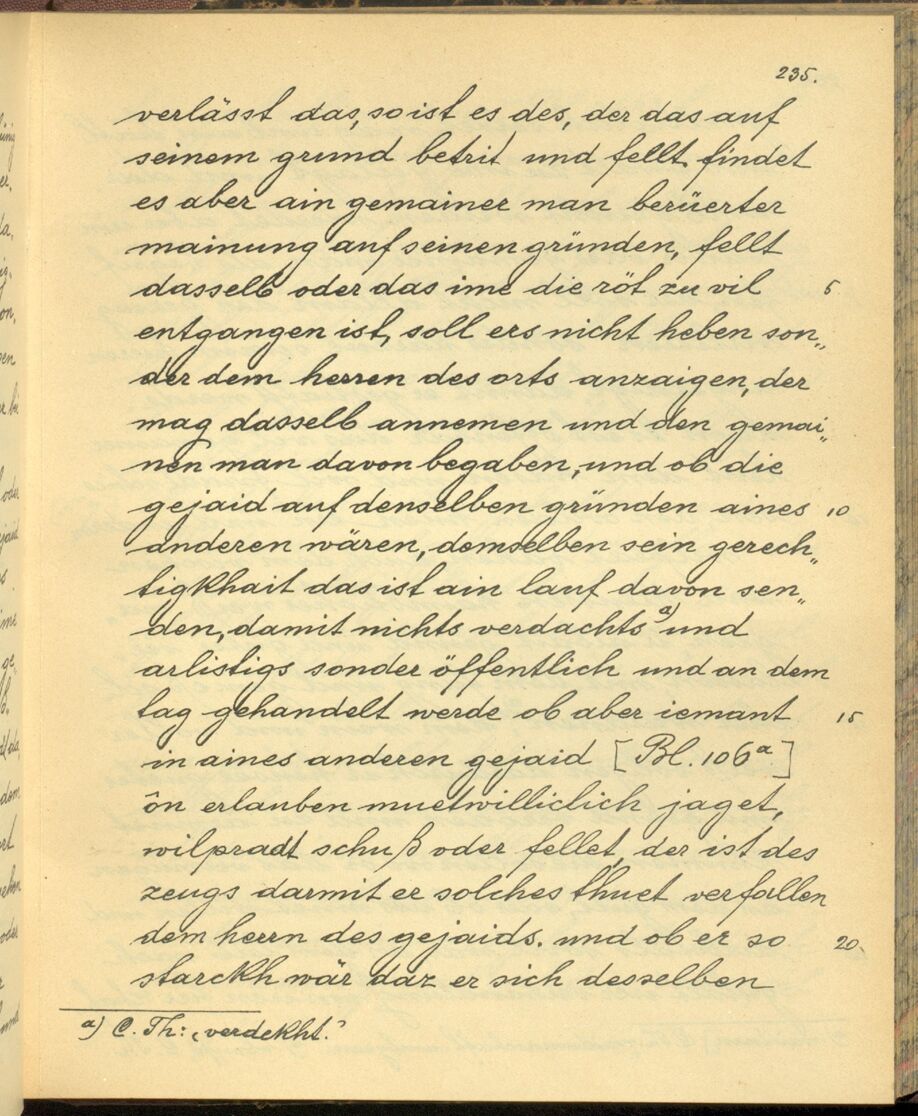 235.
verlässt das, so ist es des, der das auf
seinem grund betrit und fellt, findet
es aber ain gemainer man berüerter
mainung auf seinen gründen, fellt
dasselb oder das ime die röt zu vil 5
entgangen ist, soll ers nicht heben son„
der dem herren des orts anzaigen, der
mag dasselb annemen und den gemai„
nen man davon begaben, und ob die
gejaid auf denselben gründen aines 10
anderen wären, demselben sein gerech„
tigkhait das ist ain lauf davon sen„
den, damit nichts verdachts a) und
arlistigs sonder öffentlich und an dem
tag gehandelt werde ob aber iemant 15
in aines anderen gejaid [Bl. 106a]
ôn erlauben muetwilliclich jaget,
wilpradt schuß oder fellet, der ist des
zeugs darmit er solches thuet verfallen
dem herrn des gejaids. und ob er so 20
starckh wär daz er sich desselben
a) C. Th: „verdekht."